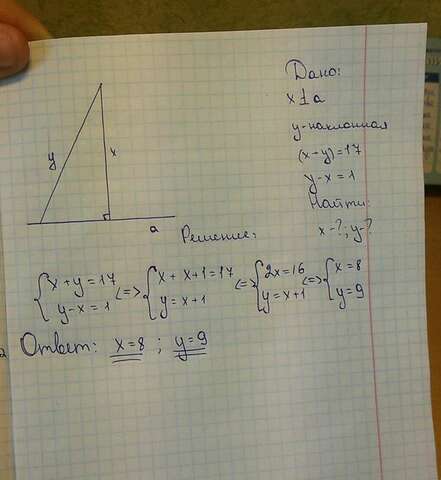 y
x
a
Дано:
x⊥a
y-наклонная
(x+y)=17
y-x=1
Найти:
x-?; y-?
Решение:
{x+y=17 <=> {x+x+1=17 <=> {2x=16 <=> {x=8
y-x=1 y=x+1 y=x+1 y=9
Ответ: x=8 ; y=9